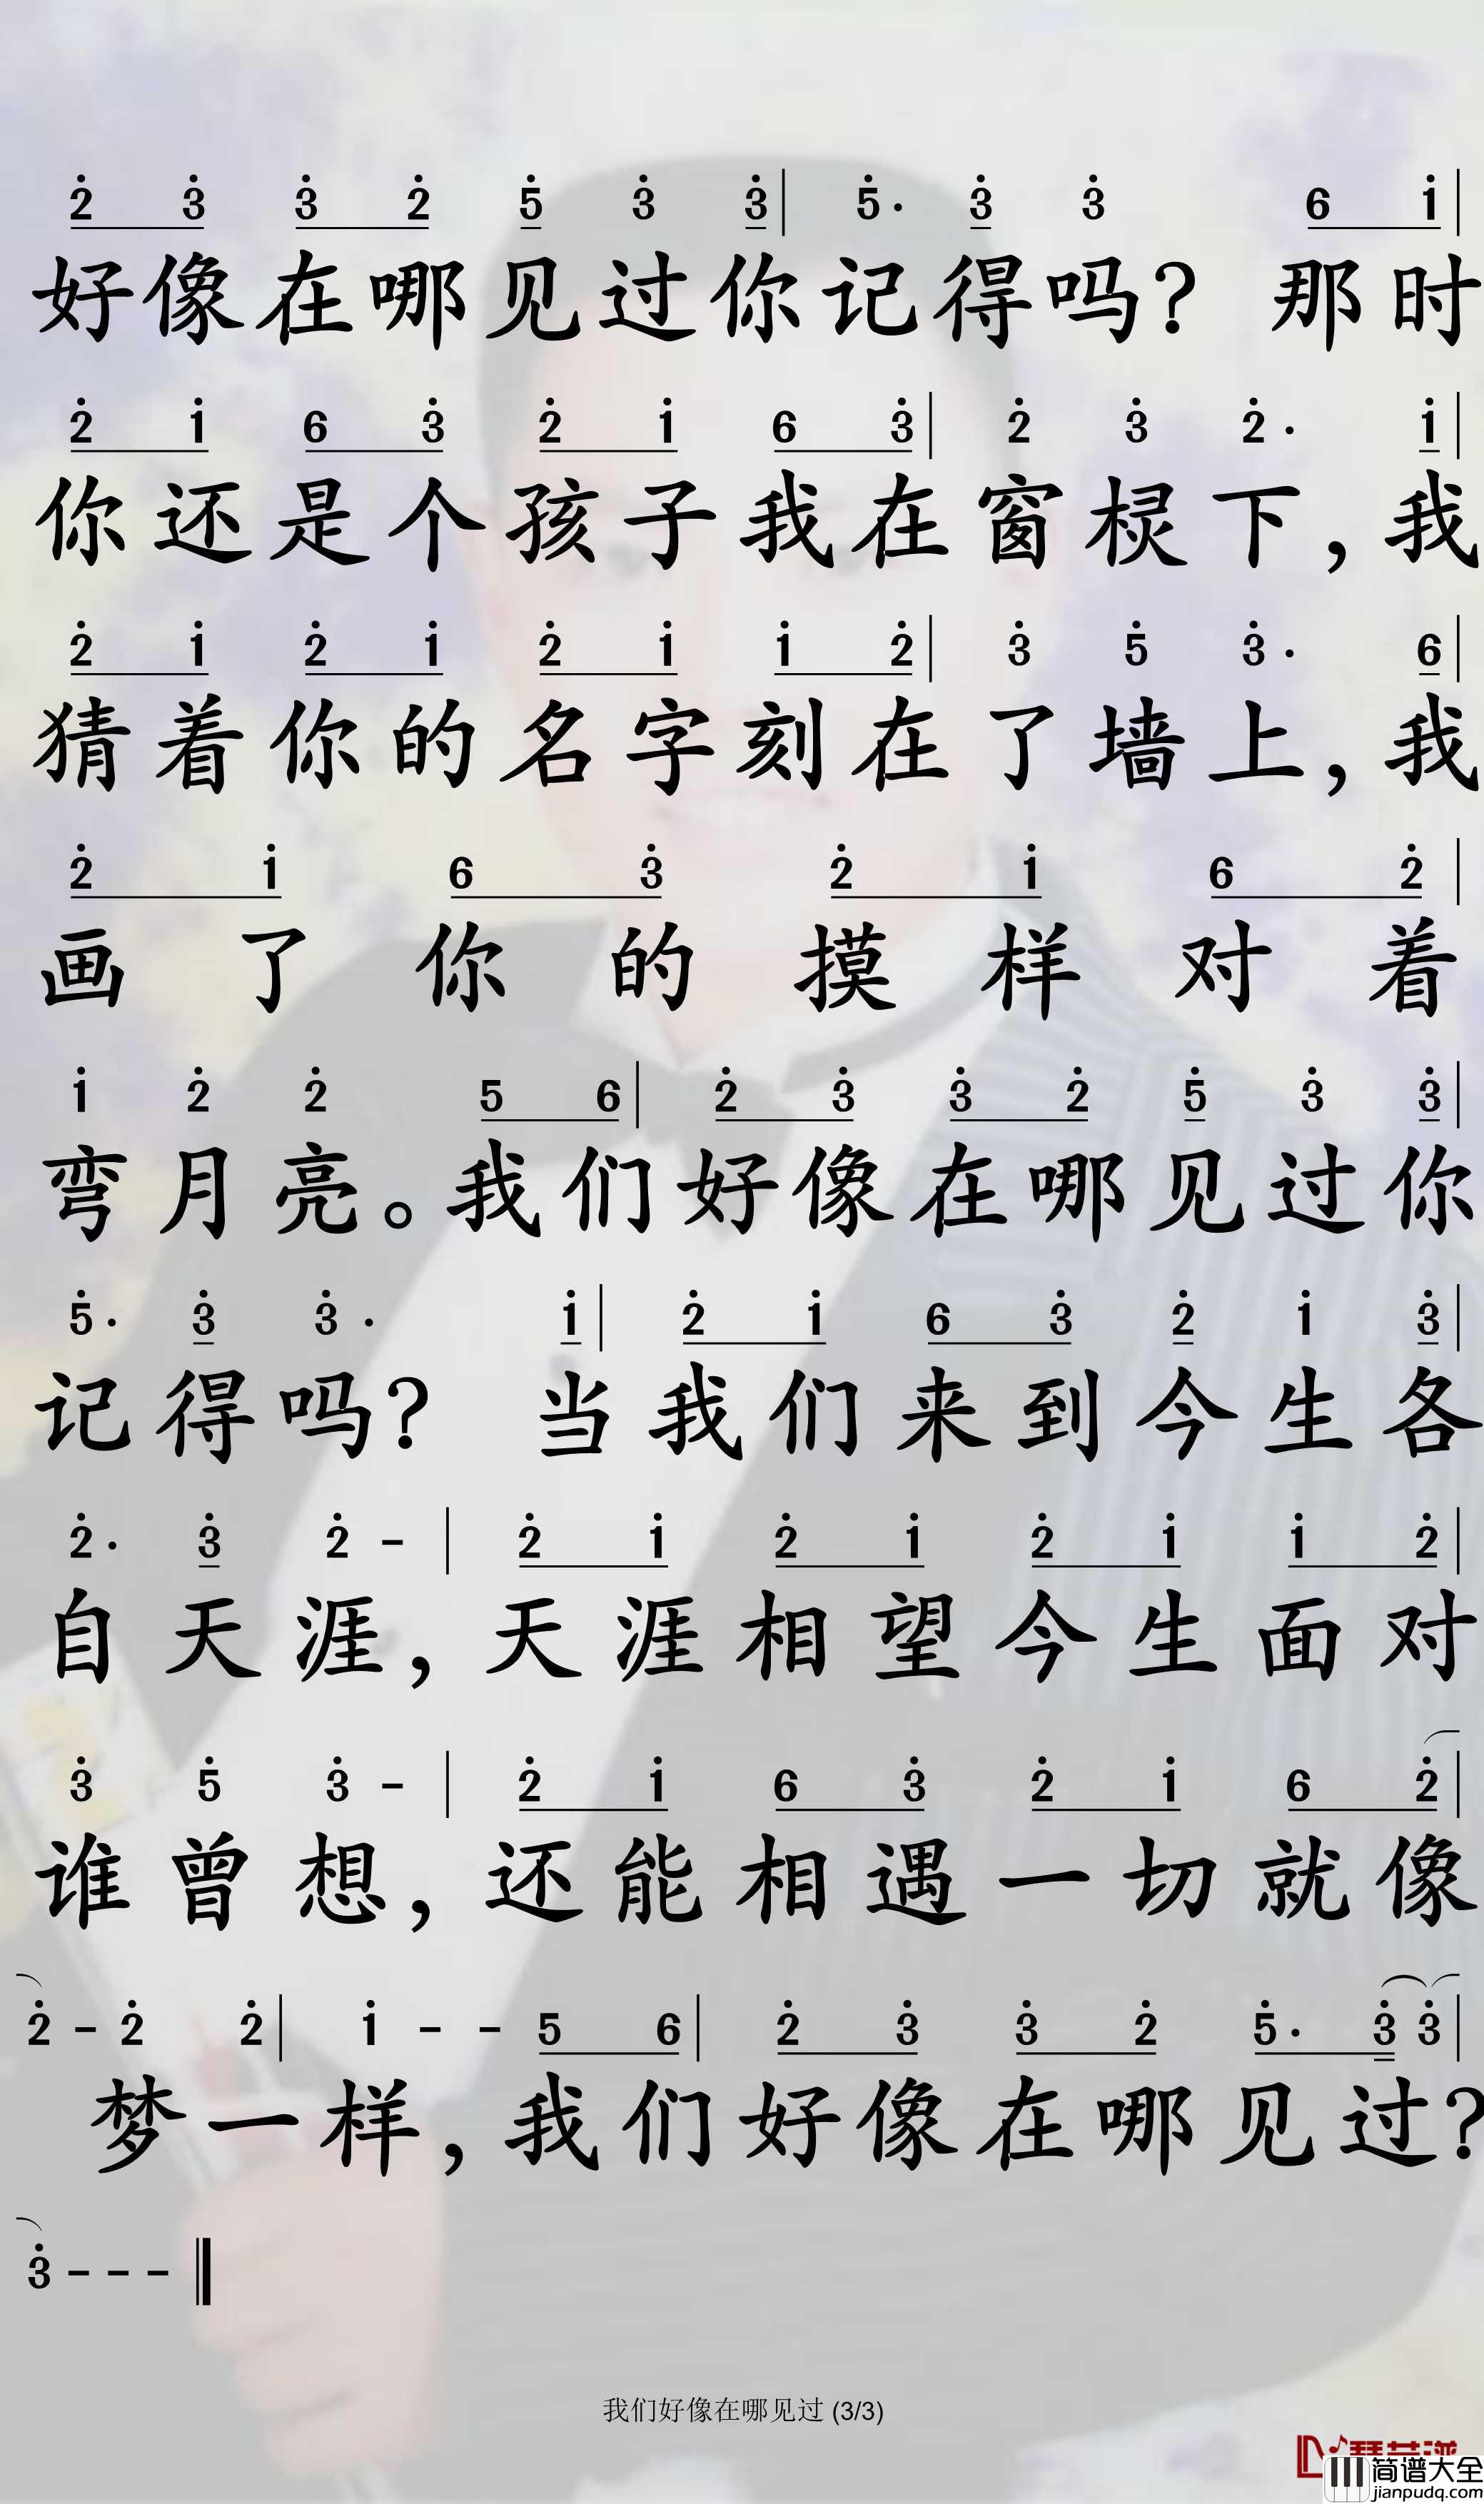 2̇ 3̇ 3̇ 2̇ 5̇ 3̇ 3̇ | 5̇· 3̇ 3̇ 6 1̇ |
好像在哪见过你记得吗？ 那时
2̇ 1̇ 6 3̇ 2̇ 1̇ 6 3̇ | 2̇ 3̇ 2̇· 1̇ |
你还是个孩子我在窗棂下，我
2̇ 1̇ 2̇ 1̇ 2̇ 1̇ 1̇ 2̇ | 3̇ 5̇ 3̇· 6 |
猜着你的名字刻在了墙上，我
2̇ 1̇ 6 3̇ 2̇ 1̇ 6 2̇ |
画了你的摸样对着
1̇ 2̇ 2̇ 5 6 | 2̇ 3̇ 3̇ 2̇ 5̇ 3̇ 3̇ |
弯月亮。我们好像在哪见过你
5̇· 3̇ 3̇· 1̇ | 2̇ 1̇ 6 3̇ 2̇ 1̇ 3̇ |
记得吗？ 当我们来到今生各
2̇· 3̇ 2̇ - | 2̇ 1̇ 2̇ 1̇ 2̇ 1̇ 1̇ 2̇ |
自天涯，天涯相望今生面对
3̇ 5̇ 3̇ - | 2̇ 1̇ 6 3̇ 2̇ 1̇ 6 2̇ |
谁曾想，还能相遇一切就像
2̇ - 2̇ 2̇ | 1̇ - - 5 6 | 2̇ 3̇ 3̇ 2̇ 5̇· 3̇ 3̇ |
梦一样，我们好像在哪见过？
3̇ - - - ‖
我们好像在哪见过 (3/3)
简谱大全
jianpudq.com